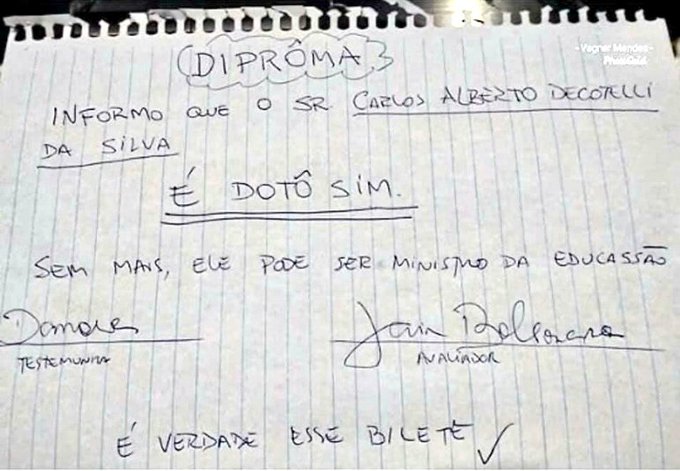 - Vagner Mendes -
DIPRÔMA
INFORMO QUE O SR. CARLOS ALBERTO DECOTELLI
DA SILVA
É DOTÔ SIM.
SEM MAIS, ELE PODE SER MINISTRO DA EDUCASSÃO
Damares Jair Bolsonaro
TESTEMUNHA AVALIADOR
É VERDADE ESSE BILETE